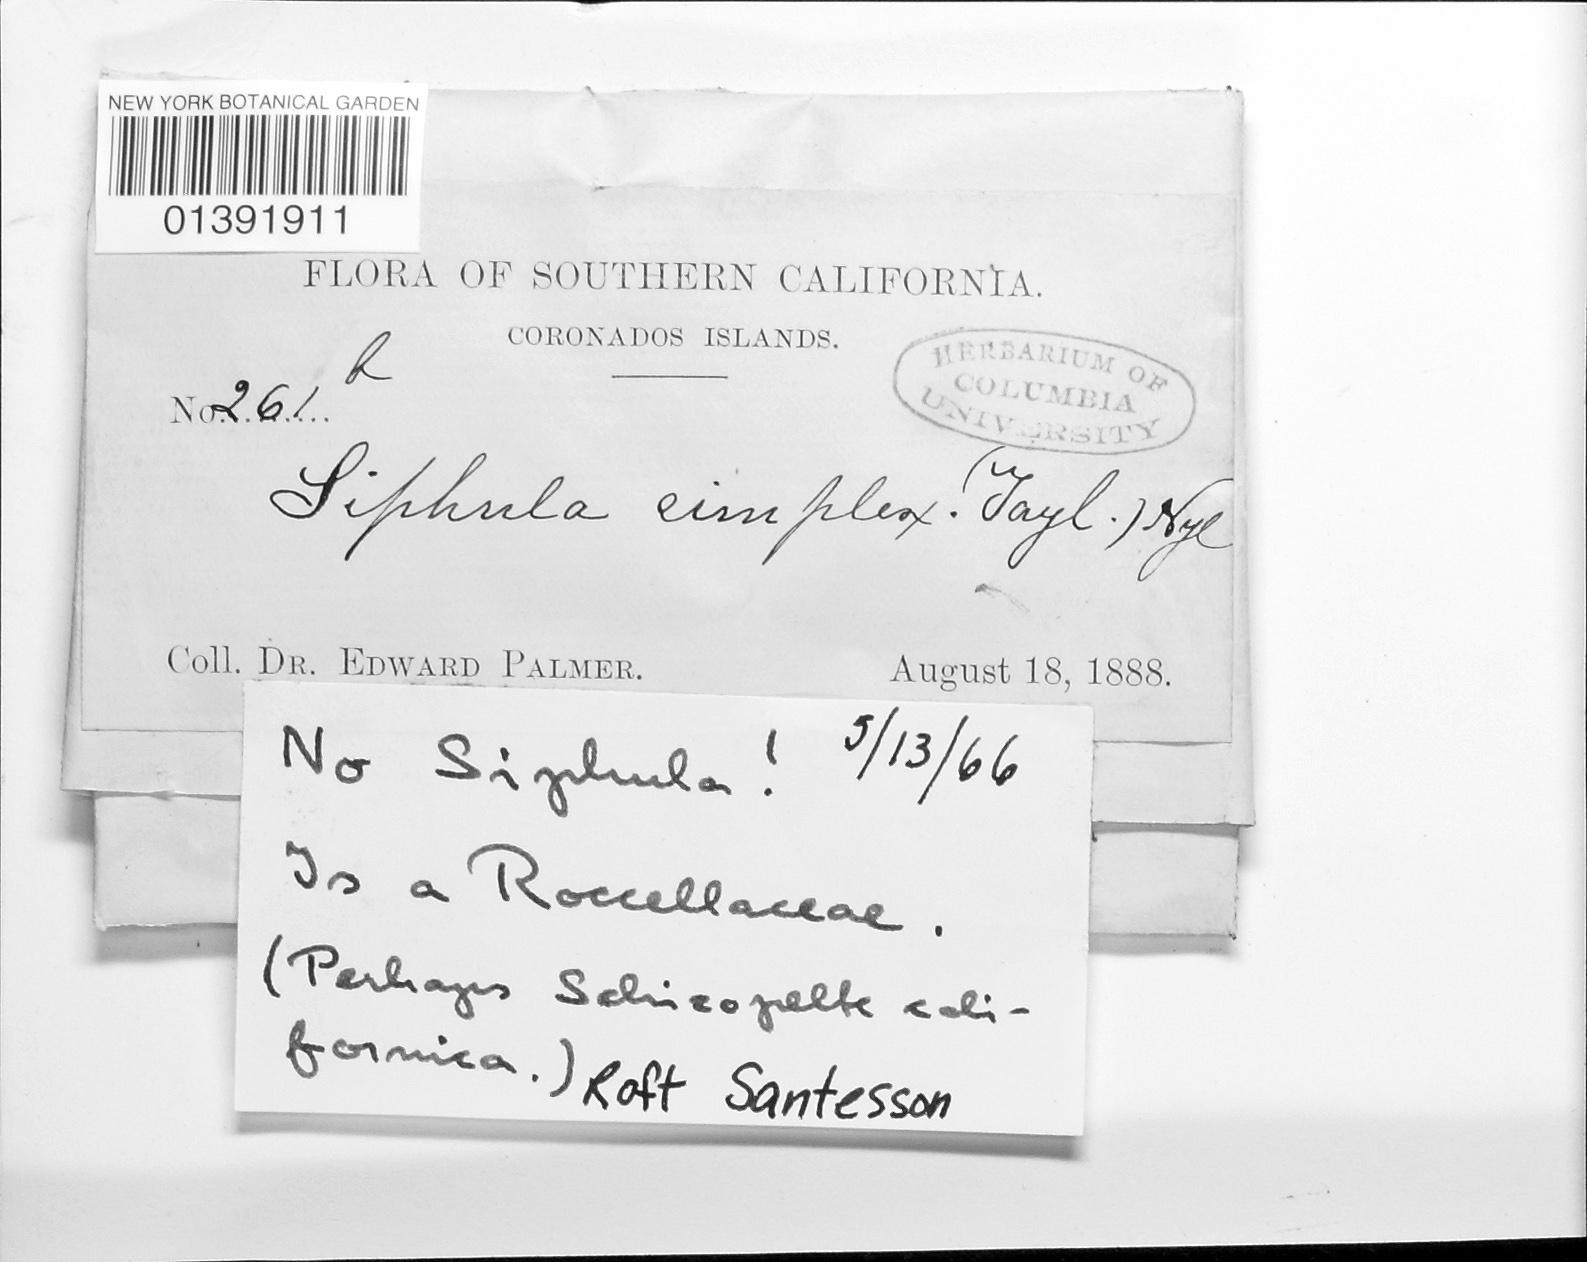 NEW YORK BOTANICAL GARDEN
01391911
FLORA OF SOUTHERN CALIFORNIA.
CORONADOS ISLANDS.
HERBARIUM OF
COLUMBIA
UNIVERSITY
No. 261
Siphula simplex. (Tayl.) Nyl
Coll. DR. EDWARD PALMER.
August 18, 1888.
No Siphula! 5/13/66
Is a Roccellaceae.
(Perhaps Schizopelte cali-
fornica.) Roft Santesson